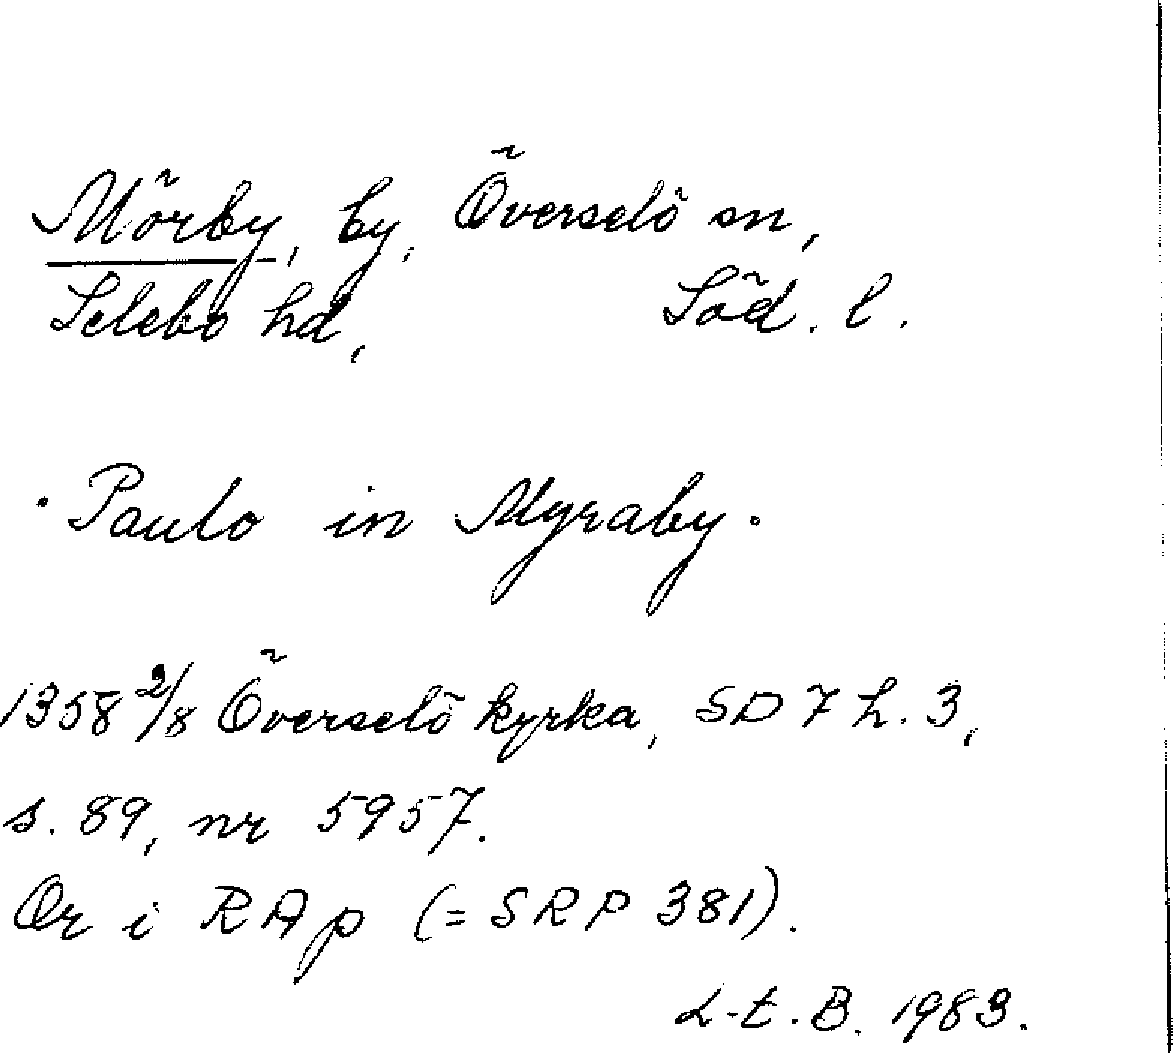 Mörby, by, Överselö sn,
Selebo hd, Söd. l.
· Paulo in Myraby ·
1358 2/8 Överselö kyrka, SD 7 h. 3,
s. 89, nr 5957.
Or i RAp (= SRP 381).
L-E.B. 1983.